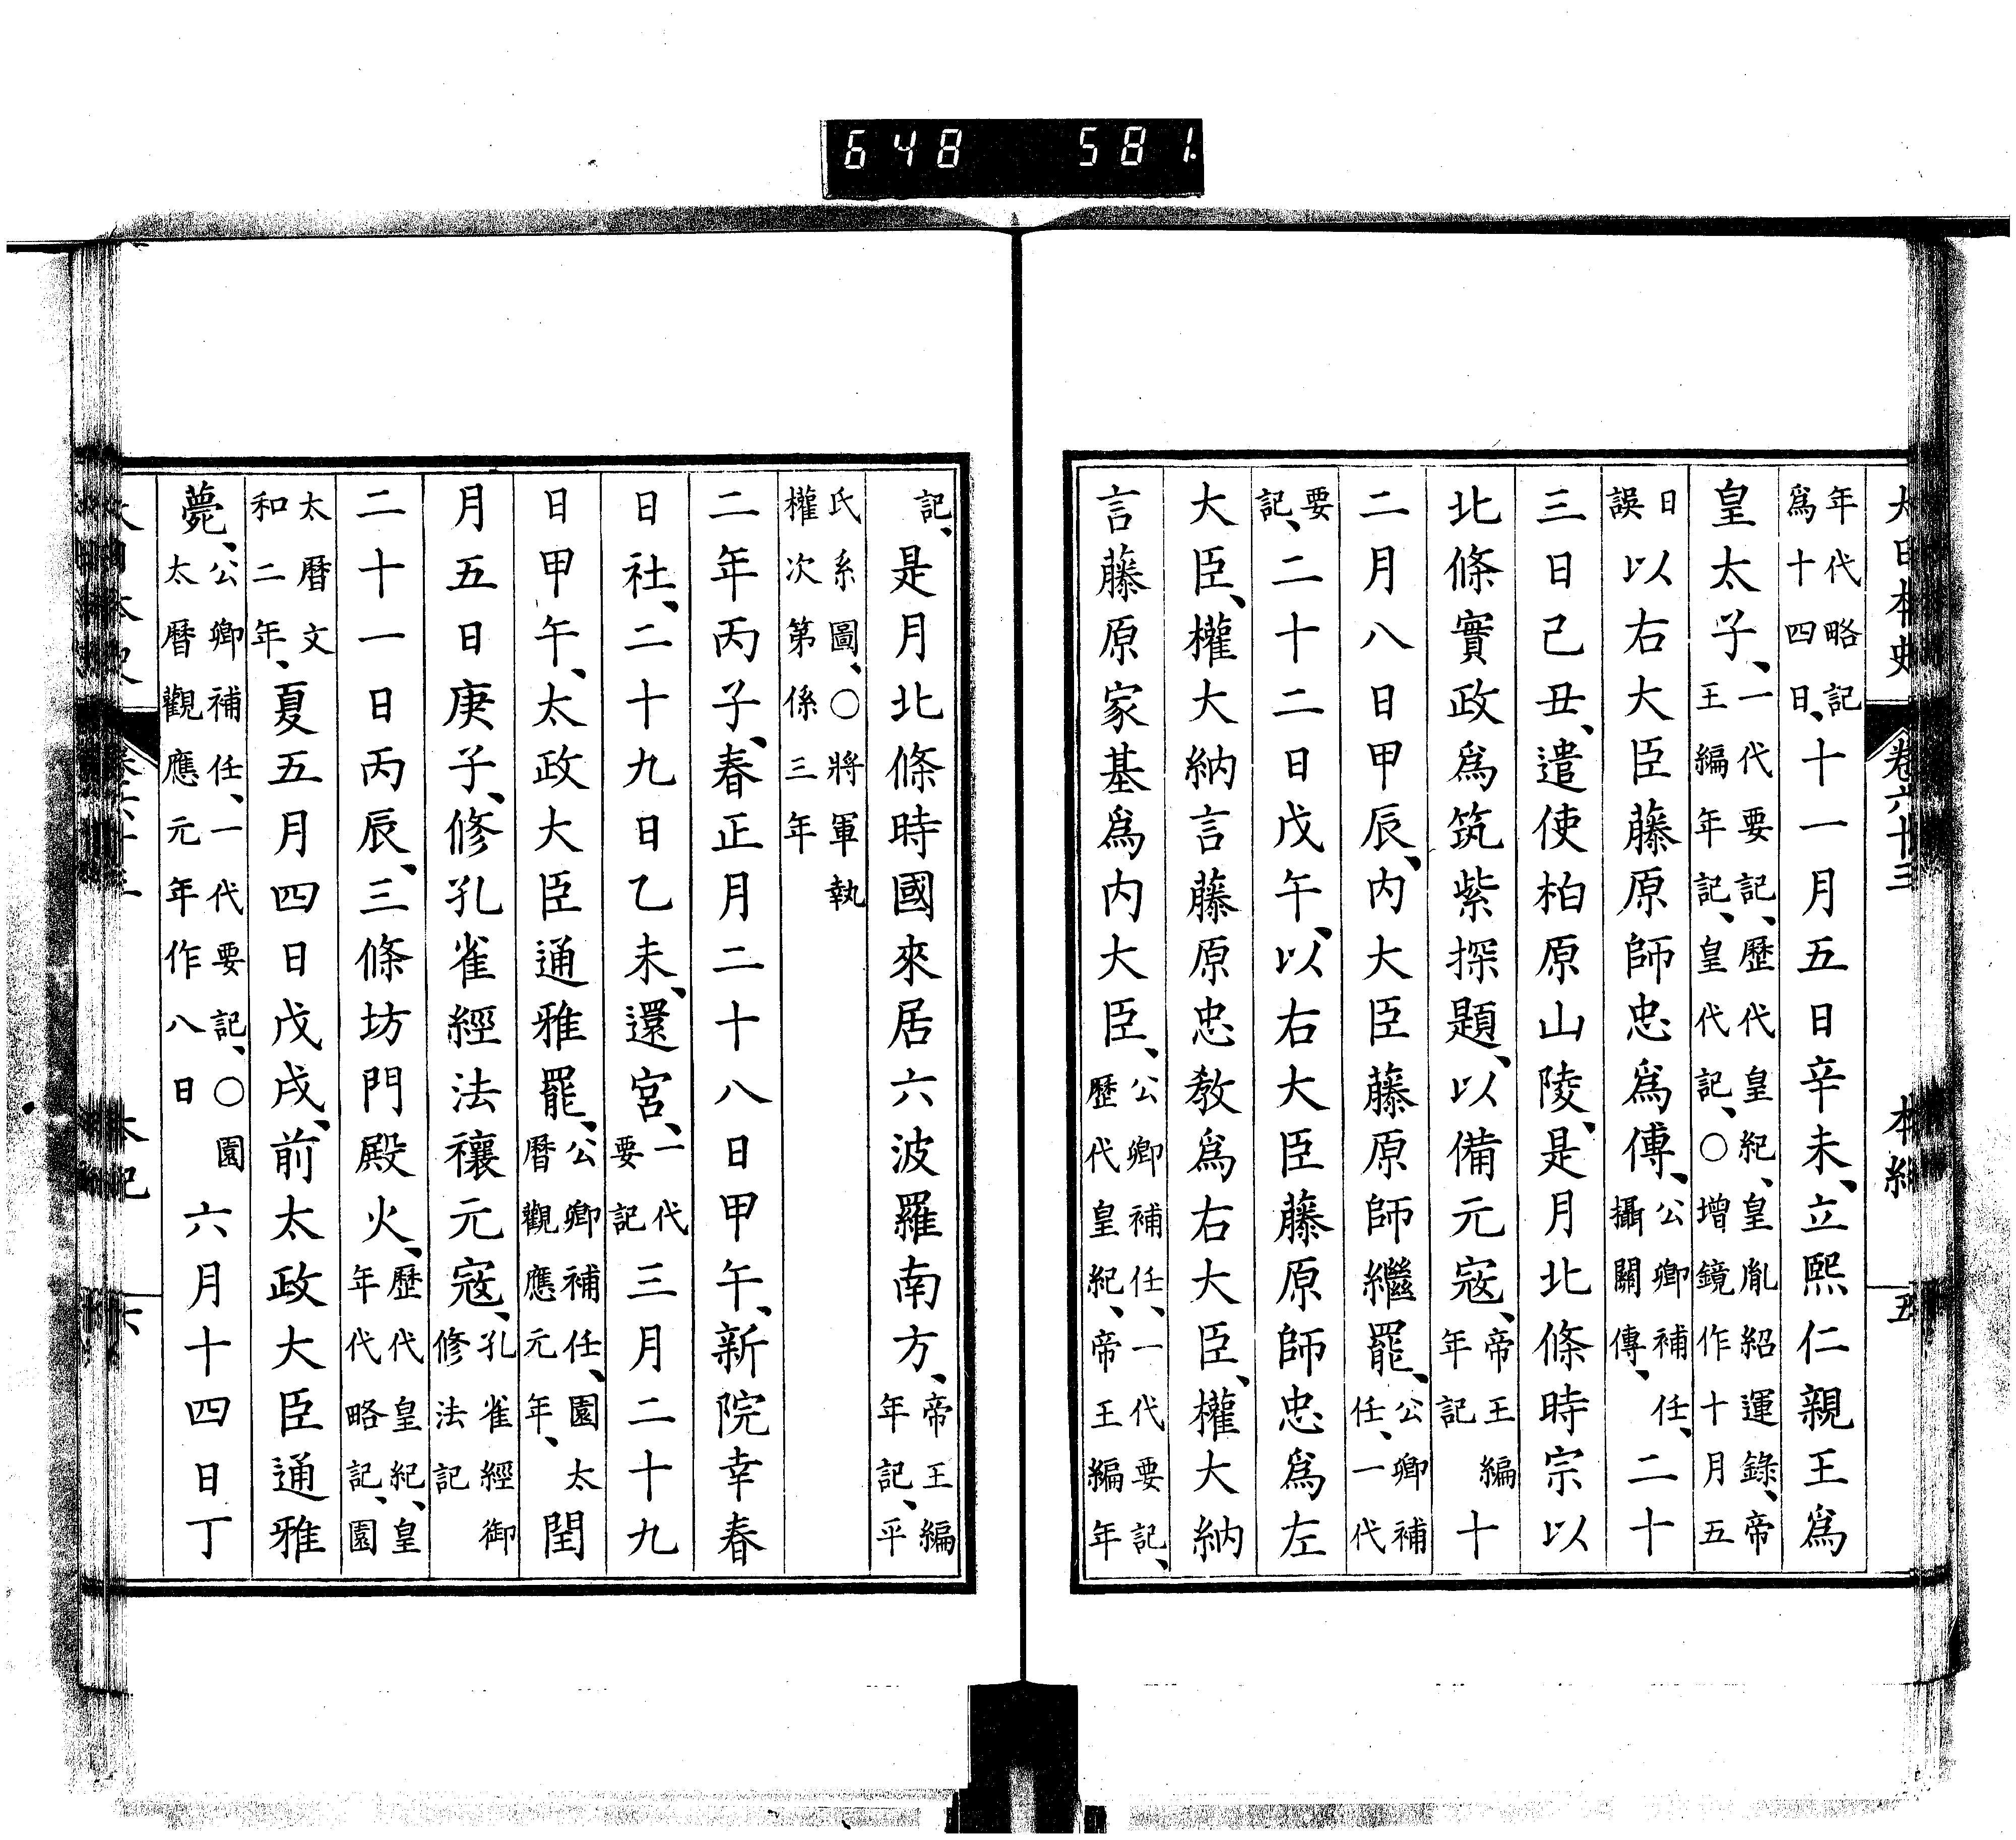 648 581.
大日本史 卷六十三 本紀 五
年代略記爲十四日、十一月五日辛未、立熙仁親王爲
皇太子、一代要記、歷代皇紀、皇胤紹運錄、帝王編年記、皇代記、○增鏡作十月五
日誤以右大臣藤原師忠爲傅、公卿補任、攝關傳、二十
三日己丑、遣使柏原山陵、是月北條時宗以
北條實政爲筑紫探題、以備元寇、帝王編年記十
二月八日甲辰、内大臣藤原師繼罷、公卿補任、一代
要記、二十二日戊午、以右大臣藤原師忠爲左
大臣、權大納言藤原忠敎爲右大臣、權大納
言藤原家基爲内大臣、公卿補任、一代要記、歷代皇紀、帝王編年
記、是月北條時國來居六波羅南方、帝王編年記、平
氏系圖、○將軍執權次第係三年
二年丙子、春正月二十八日甲午、新院幸春
日社、二十九日乙未、還宮、一代要記三月二十九
日甲午、太政大臣通雅罷、公卿補任、園太曆觀應元年、閏
月五日庚子、修孔雀經法禳元寇、孔雀經御修法記
二十一日丙辰、三條坊門殿火、歷代皇紀、皇年代略記、園
太曆文和二年、夏五月四日戊戌、前太政大臣通雅
薨、公卿補任、一代要記、○園太曆觀應元年作八日六月十四日丁
本紀